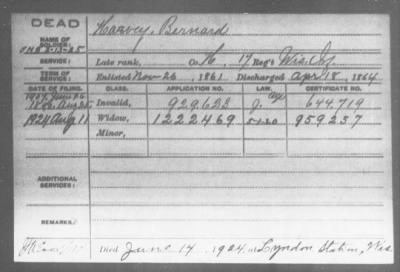 DEAD
NAME OF SOLDIER: Harvey, Bernard
SERVICE: Late rank, Co. K, 17 Reg't Wis. Inf.
TERM OF SERVICE: Enlisted Nov 26, 1861 Discharged Apr 18, 1864
DATE OF FILING. CLASS. APPLICATION NO. LAW. CERTIFICATE NO.
Invalid, 929.623 J. 644.719
1924 Aug 11 Widow, 1222469 959237
Minor,
ADDITIONAL SERVICES:
REMARKS:
Died June 14 1924 at Lyndon Station, Wis